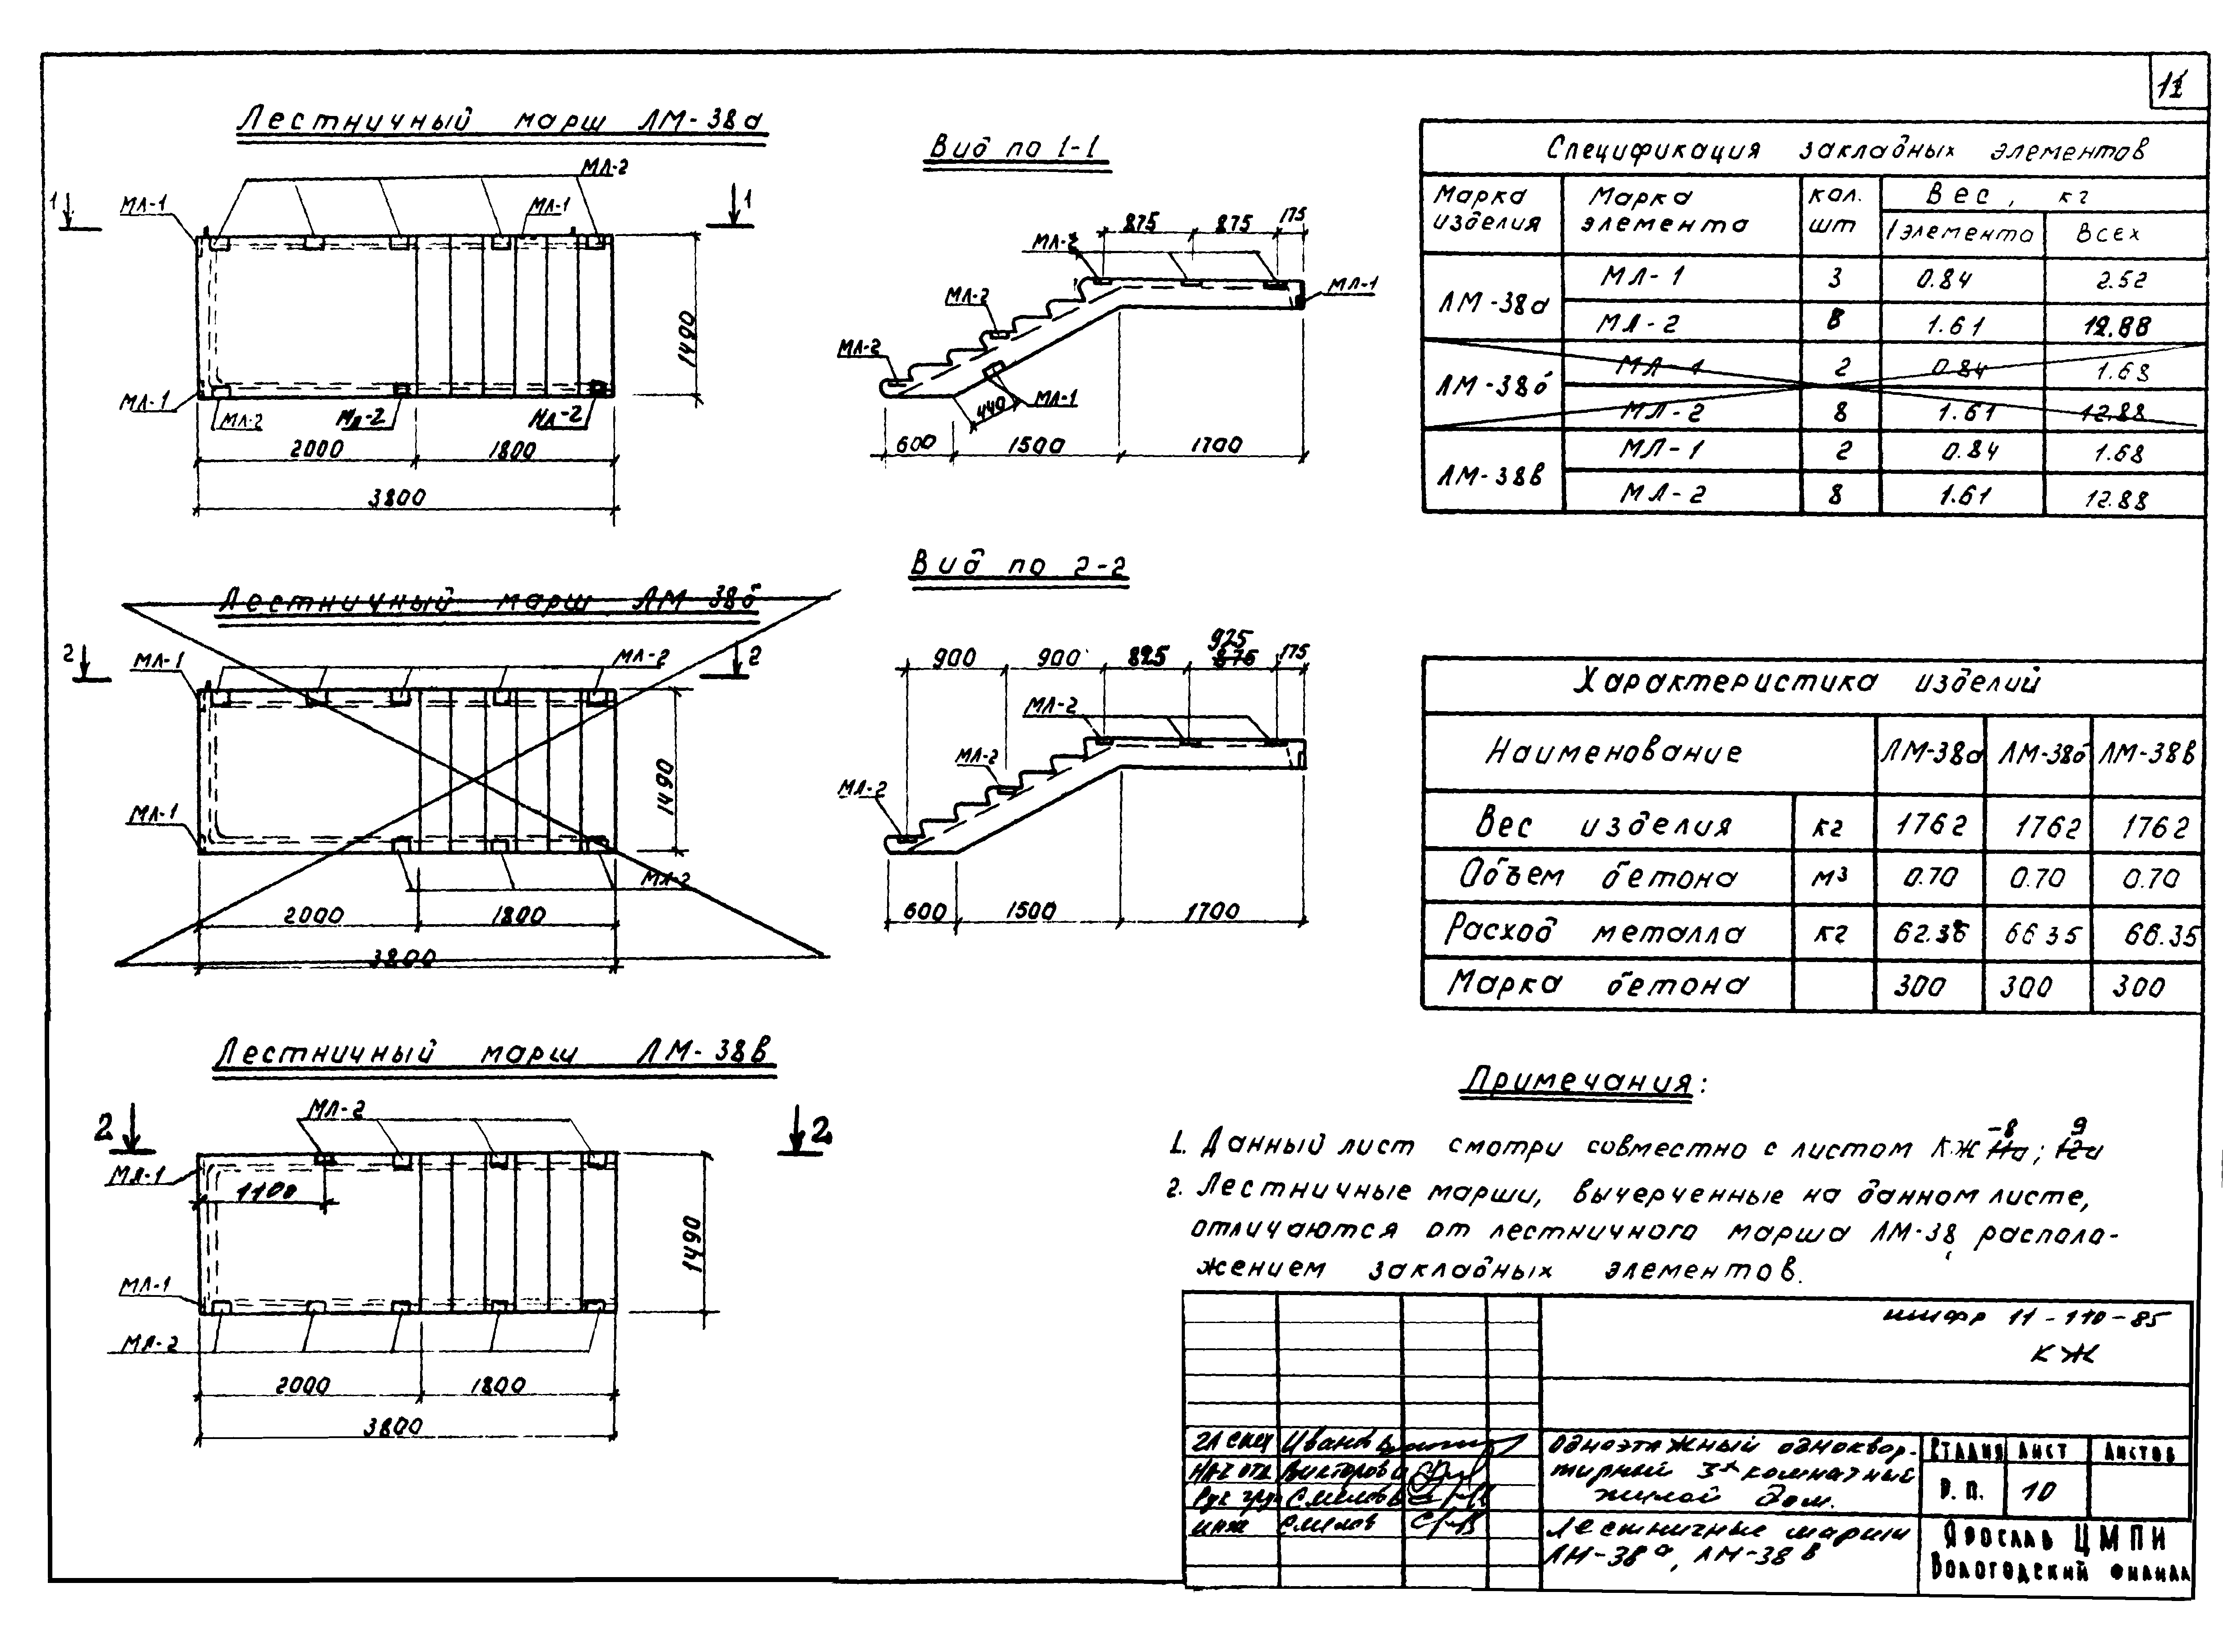 11
Лестничный марш ЛМ-38а
МЛ-2
1
1
МЛ-1
МЛ-1
МЛ-1
МЛ-2
МЛ-2
МЛ-2
1490
2000
1800
3800
Вид по 1-1
875
875
175
МЛ-2
МЛ-1
МЛ-2
МЛ-2
440
МЛ-1
600
1500
1700
Спецификация закладных элементов
Марка изделия
Марка элемента
кол. шт
Вес, кг
1 элемента
Всех
ЛМ-38а
МЛ-1 3 0.84 2.52
МЛ-2 8 1.61 12.88
ЛМ-38б
МЛ-1 2 0.84 1.68
МЛ-2 8 1.61 12.88
ЛМ-38в
МЛ-1 2 0.84 1.68
МЛ-2 8 1.61 12.88
Лестничный марш ЛМ-38б
2
2
МЛ-1
МЛ-2
МЛ-1
МЛ-2
1490
2000
1800
3800
Вид по 2-2
925
900
900
825
875
175
МЛ-2
МЛ-2
МЛ-2
600
1500
1700
Характеристика изделий
Наименование ЛМ-38а ЛМ-38б ЛМ-38в
Вес изделия кг 1762 1762 1762
Объем бетона м3 0.70 0.70 0.70
Расход металла кг 62.36 66 35 66.35
Марка бетона 300 300 300
Лестничный марш ЛМ-38в
2
2
МЛ-2
МЛ-1
1100
МЛ-1
МЛ-2
1490
2000
1800
3800
Примечания:
-8 9
1. Данный лист смотри совместно с листом КЖ 11а; 12а
2. Лестничные марши, вычерченные на данном листе,
отличаются от лестничного марша ЛМ-38, располо-
жением закладных элементов.
шифр 11-110-85
КЖ
Гл спец
Нач отд
Рук груп Смелов
инж Смелов
Одноэтажный одноквар-
тирный 3х комнатный
жилой дом.
Стадия Лист Листов
Р.П. 10
Лестничные марши
ЛМ-38а, ЛМ-38в
Ярослав ЦМПИ
Вологодский филиал